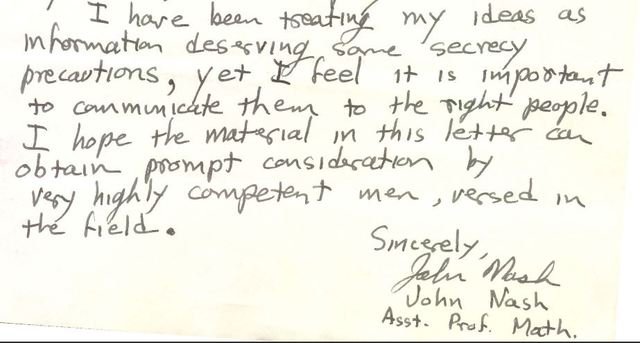 I have been treating my ideas as
information deserving some secrecy
precautions, yet I feel it is important
to communicate them to the right people.
I hope the material in this letter can
obtain prompt consideration by
very highly competent men, versed in
the field.
Sincerely,
John Nash
John Nash
Asst. Prof. Math.